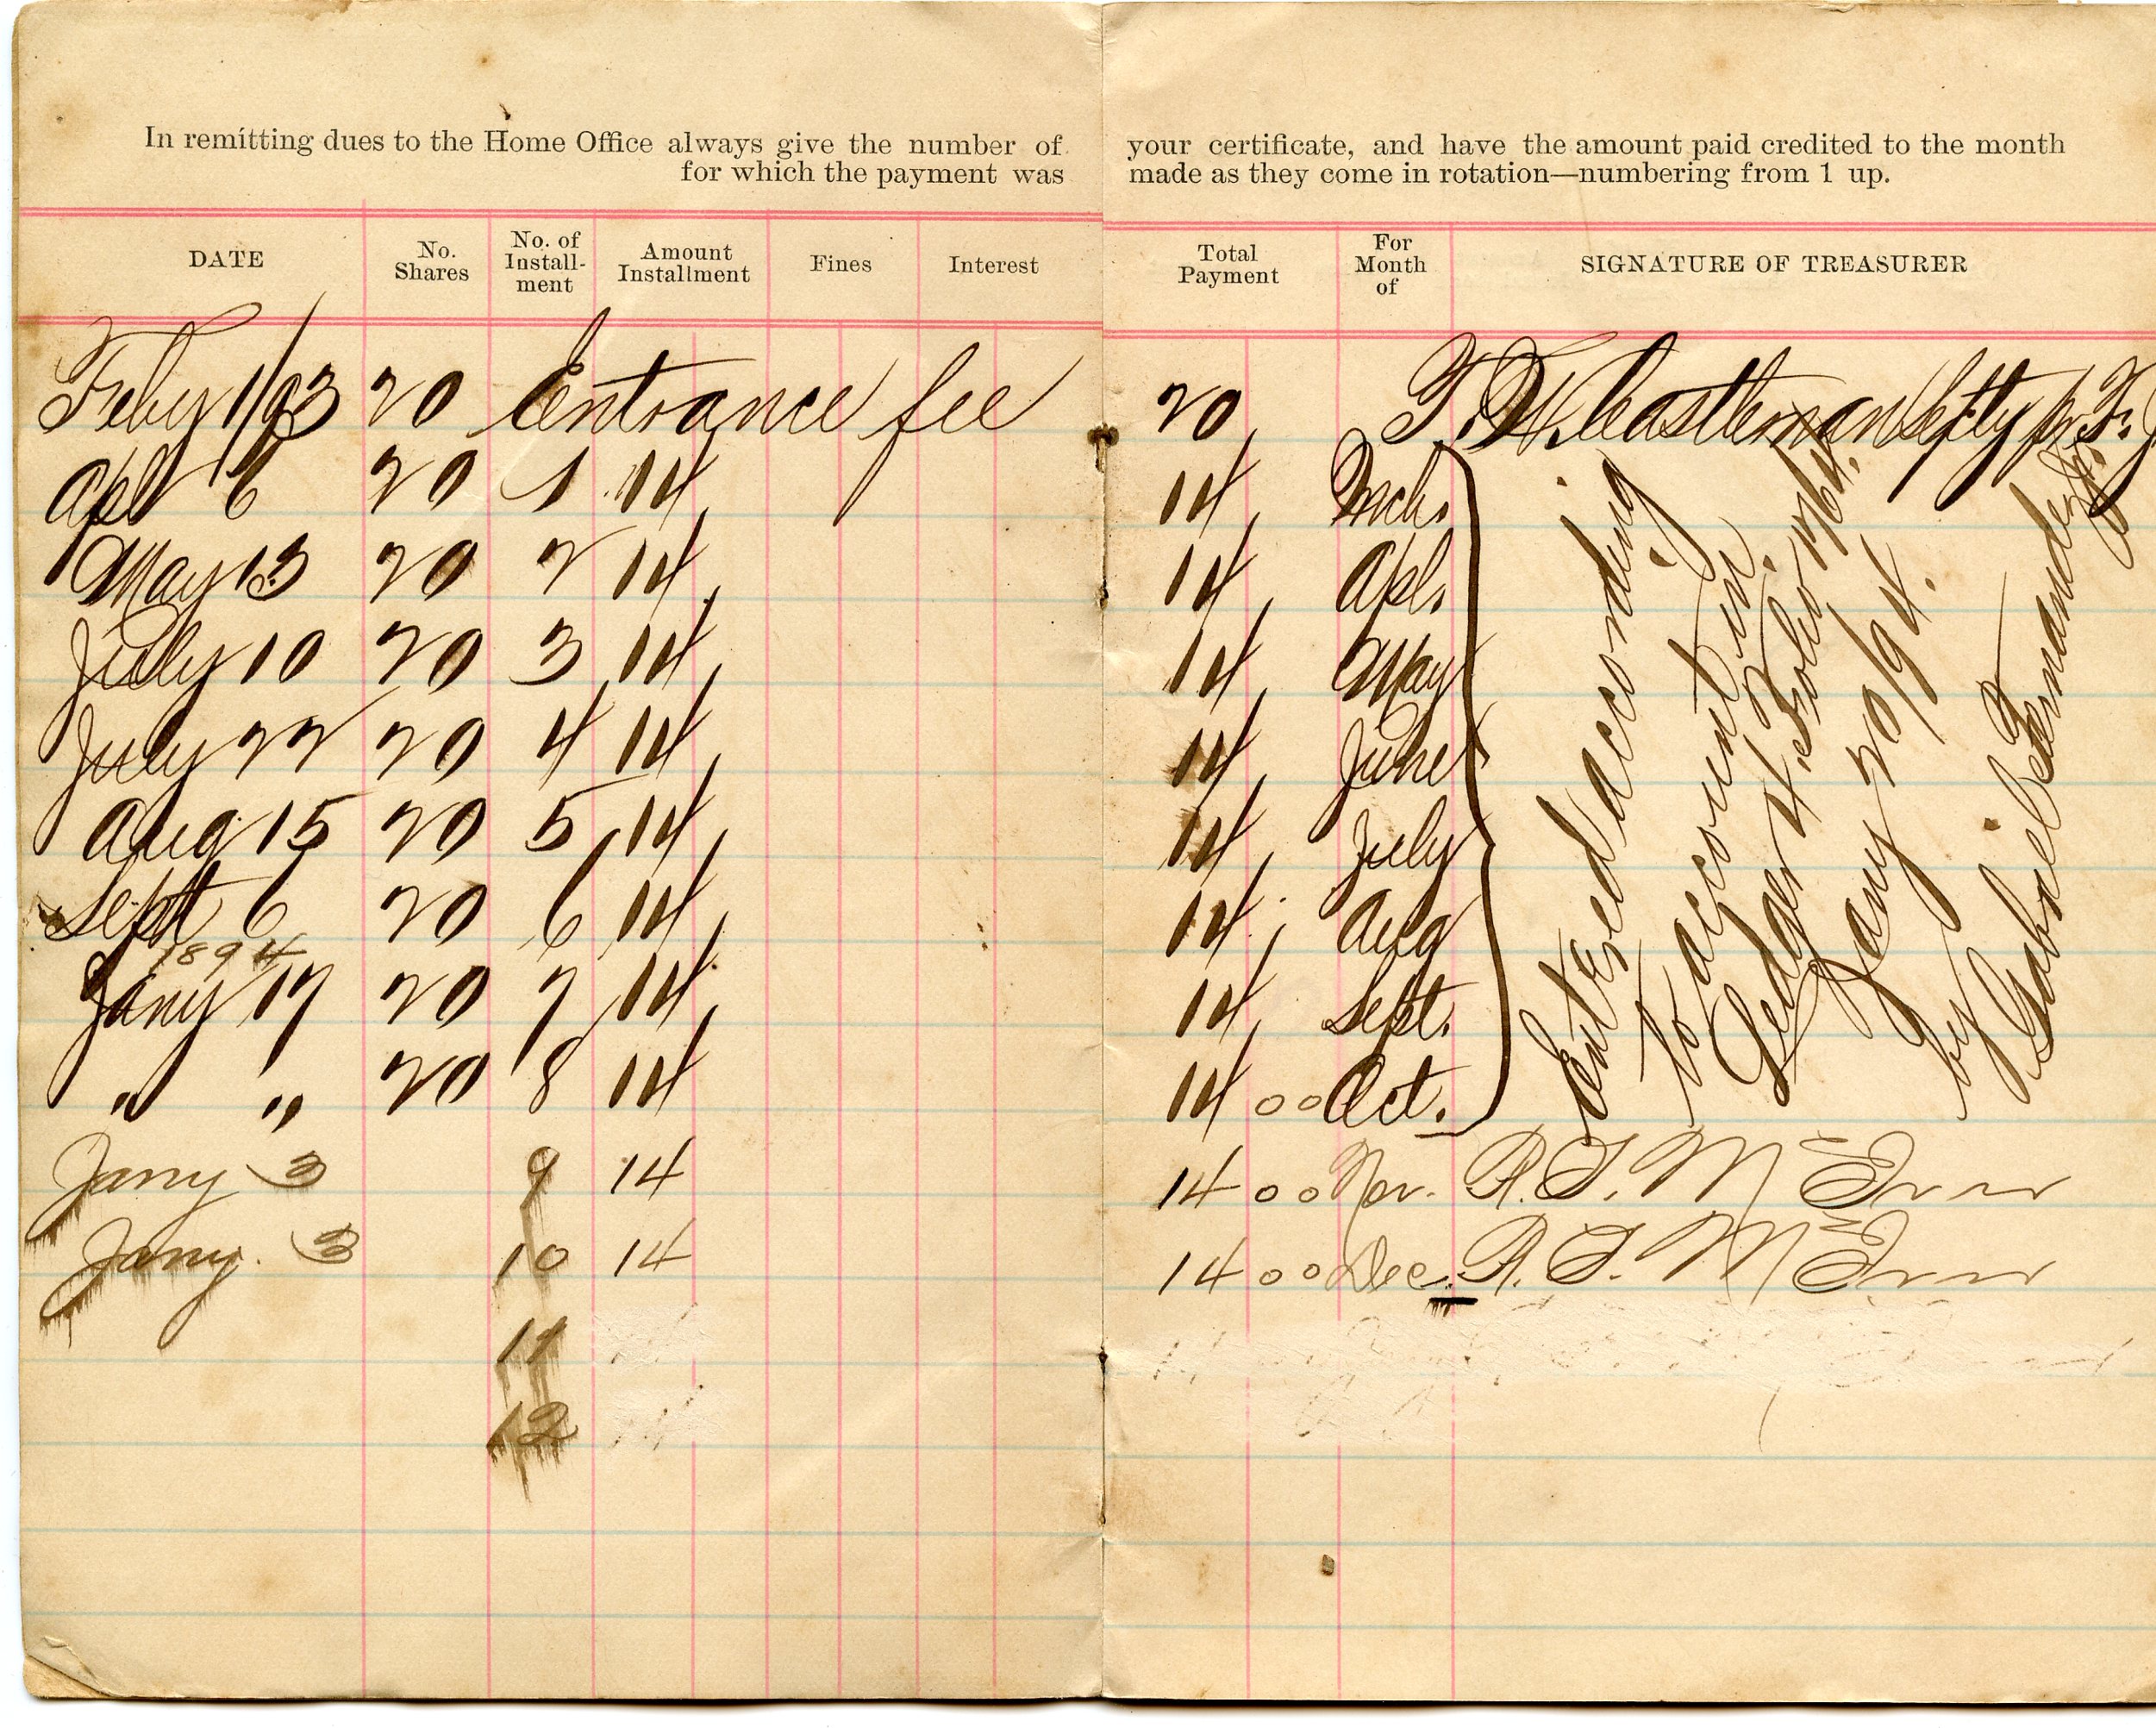 In remitting dues to the Home Office always give the number of your certificate, and have the amount paid credited to the month
for which the payment was made as they come in rotation—numbering from 1 up.
DATE No. Shares No. of Install-ment Amount Installment Fines Interest Total Payment For Month of SIGNATURE OF TREASURER
Feby 1/93 20 Entrance fee 20 T. W. Eastleman
Apl 6 20 1 14 14 Mch.
May 13 20 2 14 14 Apl.
July 10 20 3 14 14 May
July 22 20 4 14 14 June
Aug 15 20 5 14 14 July
Sept 6 20 6 14 14 Aug
1894
Jany 17 20 7 14 14 Sept.
" " 20 8 14 14 00 Oct.
Entered according
to account in
Ledger 4, Folio 1764.
Jany 20/94.
by
Gabriel Fernandez
Jany 3 9 14 14 00 Nov.
Jany. 3 10 14 14 00 Dec.
11
12